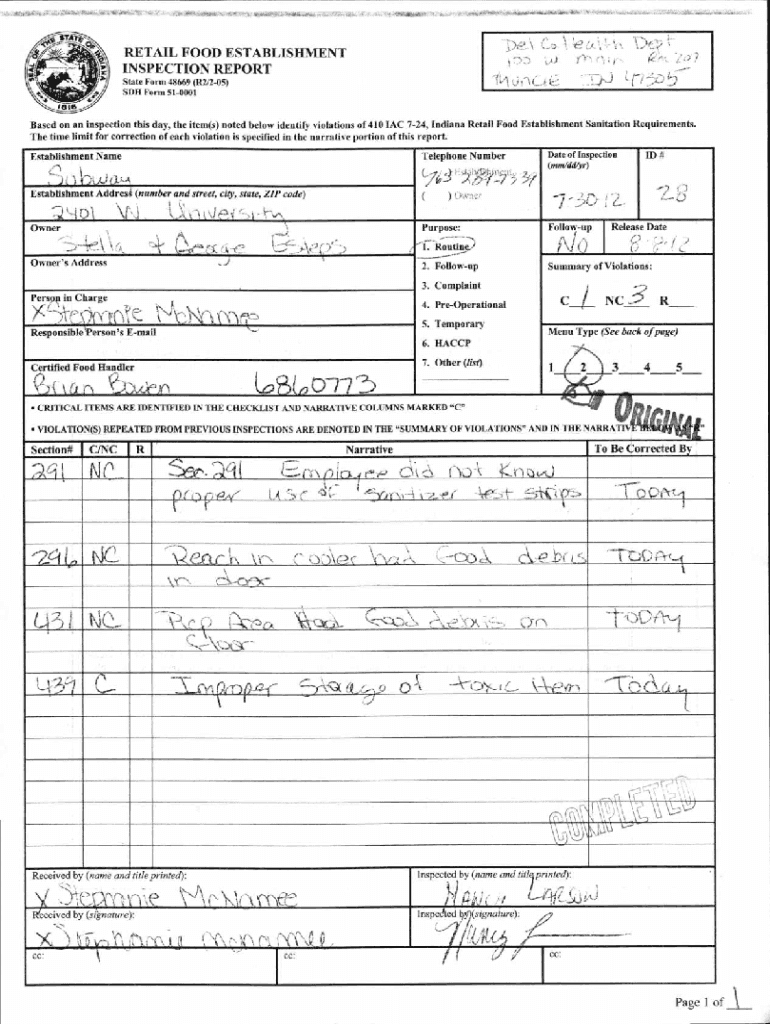 SEAL OF THE STATE OF INDIANA
1816
RETAIL FOOD ESTABLISHMENT
INSPECTION REPORT
State Form 48669 (R2/2-05)
SDH Form 51-0001
Del Co Health Dept
100 W Main Rm 207
Muncie IN 47305
Based on an inspection this day, the item(s) noted below identify violations of 410 IAC 7-24, Indiana Retail Food Establishment Sanitation Requirements.
The time limit for correction of each violation is specified in the narrative portion of this report.
Establishment Name
Subway
Telephone Number
( ) Establishment
( ) Owner
Date of Inspection
(mm/dd/yr)
7-30-12
ID #
28
Establishment Address (number and street, city, state, ZIP code)
2401 W. University
Owner
Stella & George Estep's
Purpose:
1. Routine
2. Follow-up
3. Complaint
4. Pre-Operational
5. Temporary
6. HACCP
7. Other (list)
Follow-up
No
Release Date
8-8-12
Owner's Address
Summary of Violations:
C 1 NC 3 R
Person in Charge
X Stephanie McNamee
Responsible Person's E-mail
Menu Type (See back of page)
1 2 3 4 5
Certified Food Handler
Brian Bowen 6860773
• CRITICAL ITEMS ARE IDENTIFIED IN THE CHECKLIST AND NARRATIVE COLUMNS MARKED "C"
ORIGINAL
• VIOLATION(S) REPEATED FROM PREVIOUS INSPECTIONS ARE DENOTED IN THE "SUMMARY OF VIOLATIONS" AND IN THE NARRATIVE BELOW AS "R"
Section# C/NC R Narrative To Be Corrected By
291 NC Sec. 291 Employee did not know
proper use of sanitizer test strips Today
296 NC Reach in cooler had food debris TODAY
in door
431 NC Rep Area Had food debris on TODAY
floor
439 C Improper Storage of toxic item Today
COMPLETED
Received by (name and title printed):
X Stephanie McNamee
Inspected by (name and title printed):
Nancy Larson
Received by (signature):
X Stephanie McNamee
Inspected by (signature):
Nancy
cc: cc: cc:
Page 1 of 1